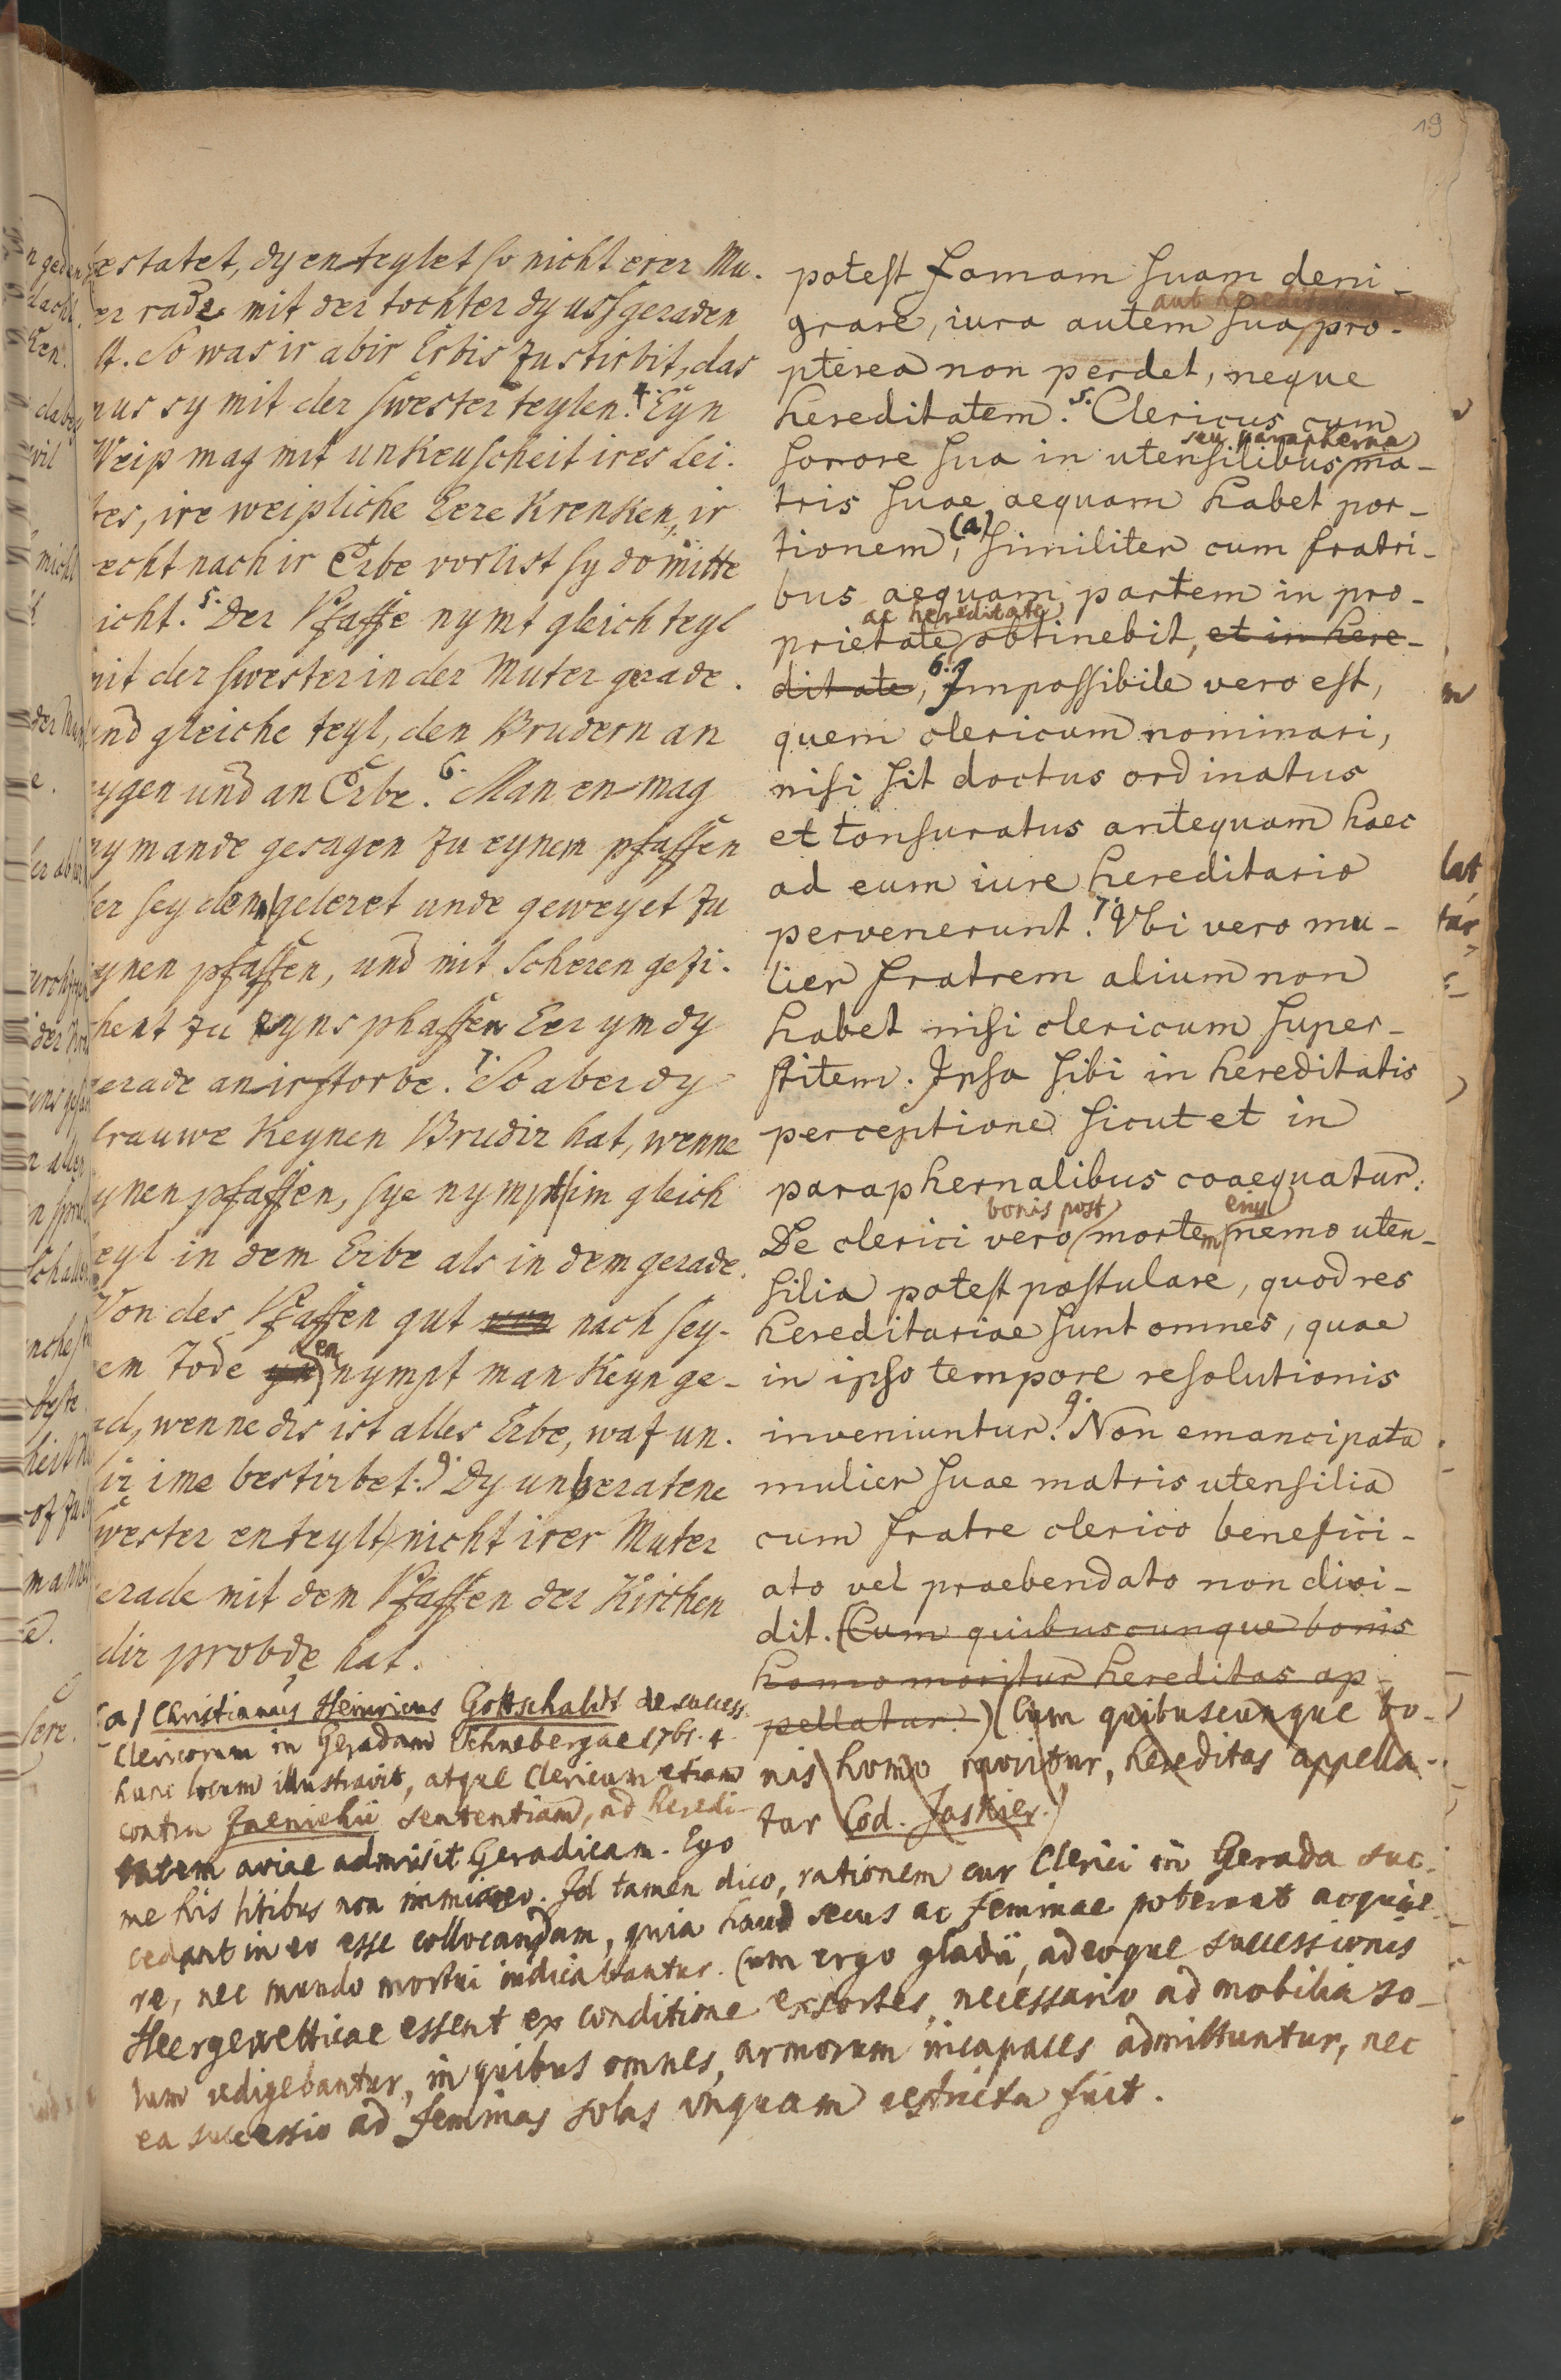 19
estatet, dy en teylet so nicht erer Mu.
er rade mit der tochter dy ussgeraden
So was ir abir Erbis zustirbit, das
sy mit der swester teylen. 4. Eyn
Weip mag mit unkeuscheit ires Lei.
bes, ire weipliche Eere krenken, ir
echt nach ir Erbe vorlust sy do mitte
icht. 5. Der Pfaffe nymt gleich teyl
mit der swester in der Muter gerade.
und gleiche teyl, den Brudern an
eygen und an Erbe. 6. Man en mag
nymande gesagen zu eynem pfaffen
er sey denn geleret unde geweyet zu
eynen pfaffen, und mit Scheren gezi.
hent zu eyns phaffen Eer ym dy
gerade anirstorbe. 7. So aber dy
frauwe Keynen Brudir hat, wenne
eynen pfaffen, sye nympt im gleich
teyl in dem Erbe als in dem gerade.
Von des Pfaffen gut von nach sey-
em Tode en nympt man Keyn ge-
ad, wenne dis ist alles Erbe, waz un.
ir ime bestirbet. 9. Dy unberatene
swester en teylt nicht irer Muter
gerade mit dem Pfaffen der Kirchen
dir probde hat.
potest famam suam deni-
aut hereditate
grare, iura autem sua pro-
pterea non perdet, neque
hereditatem. 5. Clericus cum
seu parapherna
sorore sua in utensilibus ma-
tris suae aequam habet por-
tionem, (a) similiter cum fratri-
bus aequam partem in pro-
ac hereditate
prietate obtinebit, et in here-
ditate, 6. Impossibile vero est,
quem clericum nominari,
nisi sit doctus ordinatus
et tonsuratus antequam haec
ad eum iure hereditario
pervenerunt. 7. Vbi vero mu-
lier fratrem alium non
habet nisi clericum super-
stitem. Ipsa sibi in hereditatis
perceptione sicut et in
paraphernalibus coaequatur.
bonis post eius
De clerici vero mortem nemo uten-
silia potest postulare, quod res
hereditariae sunt omnes, quae
in ipso tempore resolutionis
inveniuntur. 9. Non emancipata
mulier suae matris utensilia
cum fratre clerico benefici-
ato vel praebendato non divi-
dit. (Cum quibuscunque bonis
homo moritur hereditas ap-
pellatur.) (Cum quibuscunque bo-
nis homo moritur, hereditas appella-
tur Cod. Jaskier.)
(a) Christianus Heinricus Gottschaldt de success.
Clericorum in Geradam Schnebergae 1761. 4
hunc locum illustravit, atque Clericum etiam
contra Jaenichii sententiam, ad heredi-
tatem aviae admisit Geradicam. Ego
me his litibus non immisceo. Id tamen dico, rationem cur Clerici in Gerada suc-
cedant in eo esse collocandam, quia haud secus ac feminae poterant acquire-
re, nec mundo mortui indicabantur. Cum ergo gladii, adeoque successionis
Heergewetticae essent ex conditione exsortes, necessario ad mobilia so-
lum redigebantur, in quibus omnes, armorum incapaces admittuntur, nec
ea successio ad feminas solas unquam restricta fuit.